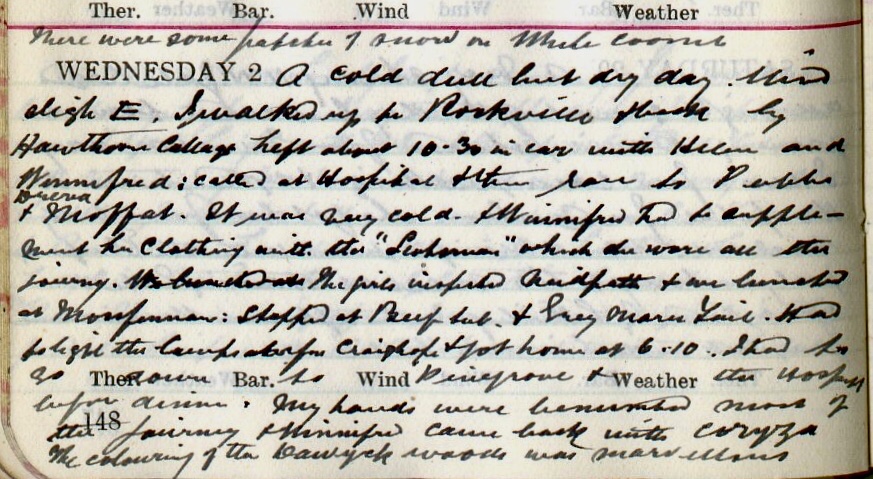 Ther. Bar. Wind Weather
There were some patches of snow on White Coomb
WEDNESDAY 2 A cold dull but dry day. Wind
sligh E. I walked up to Rockville & back by
Hawthorn Cottage. Left about 10-30 in car with Helen and
Winnifred: called at Hospital & then ran to Peebles
& Moffat. It was very cold - & Winnifred had to supple-
ment her clothing with the "Scotsman" which she wore all the
journey. We lunched at The girls inspected Neidpath & we lunched
at Mossfennan: Stopped at Beef tub. & Grey Mares Tail. Had
to light the lamps at Craighope & got home at 6-10. I had to
go down to Pinegrove & the Hospital
Ther. Bar. Wind Weather
before dinner. My hands were benumbed most of
148
the journey & Winnifred came back with coryza
The colouring of the Dawyck woods was marvellous